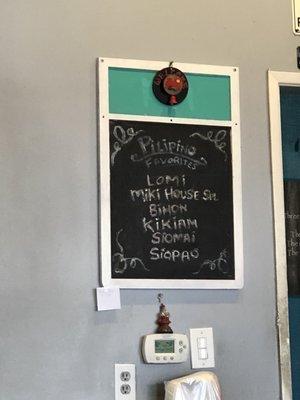 Pilipino
FAVORITES
LOMI
MIKI HOUSE Spl
BIHON
KIKIAM
SIOMAI
SIOPAO